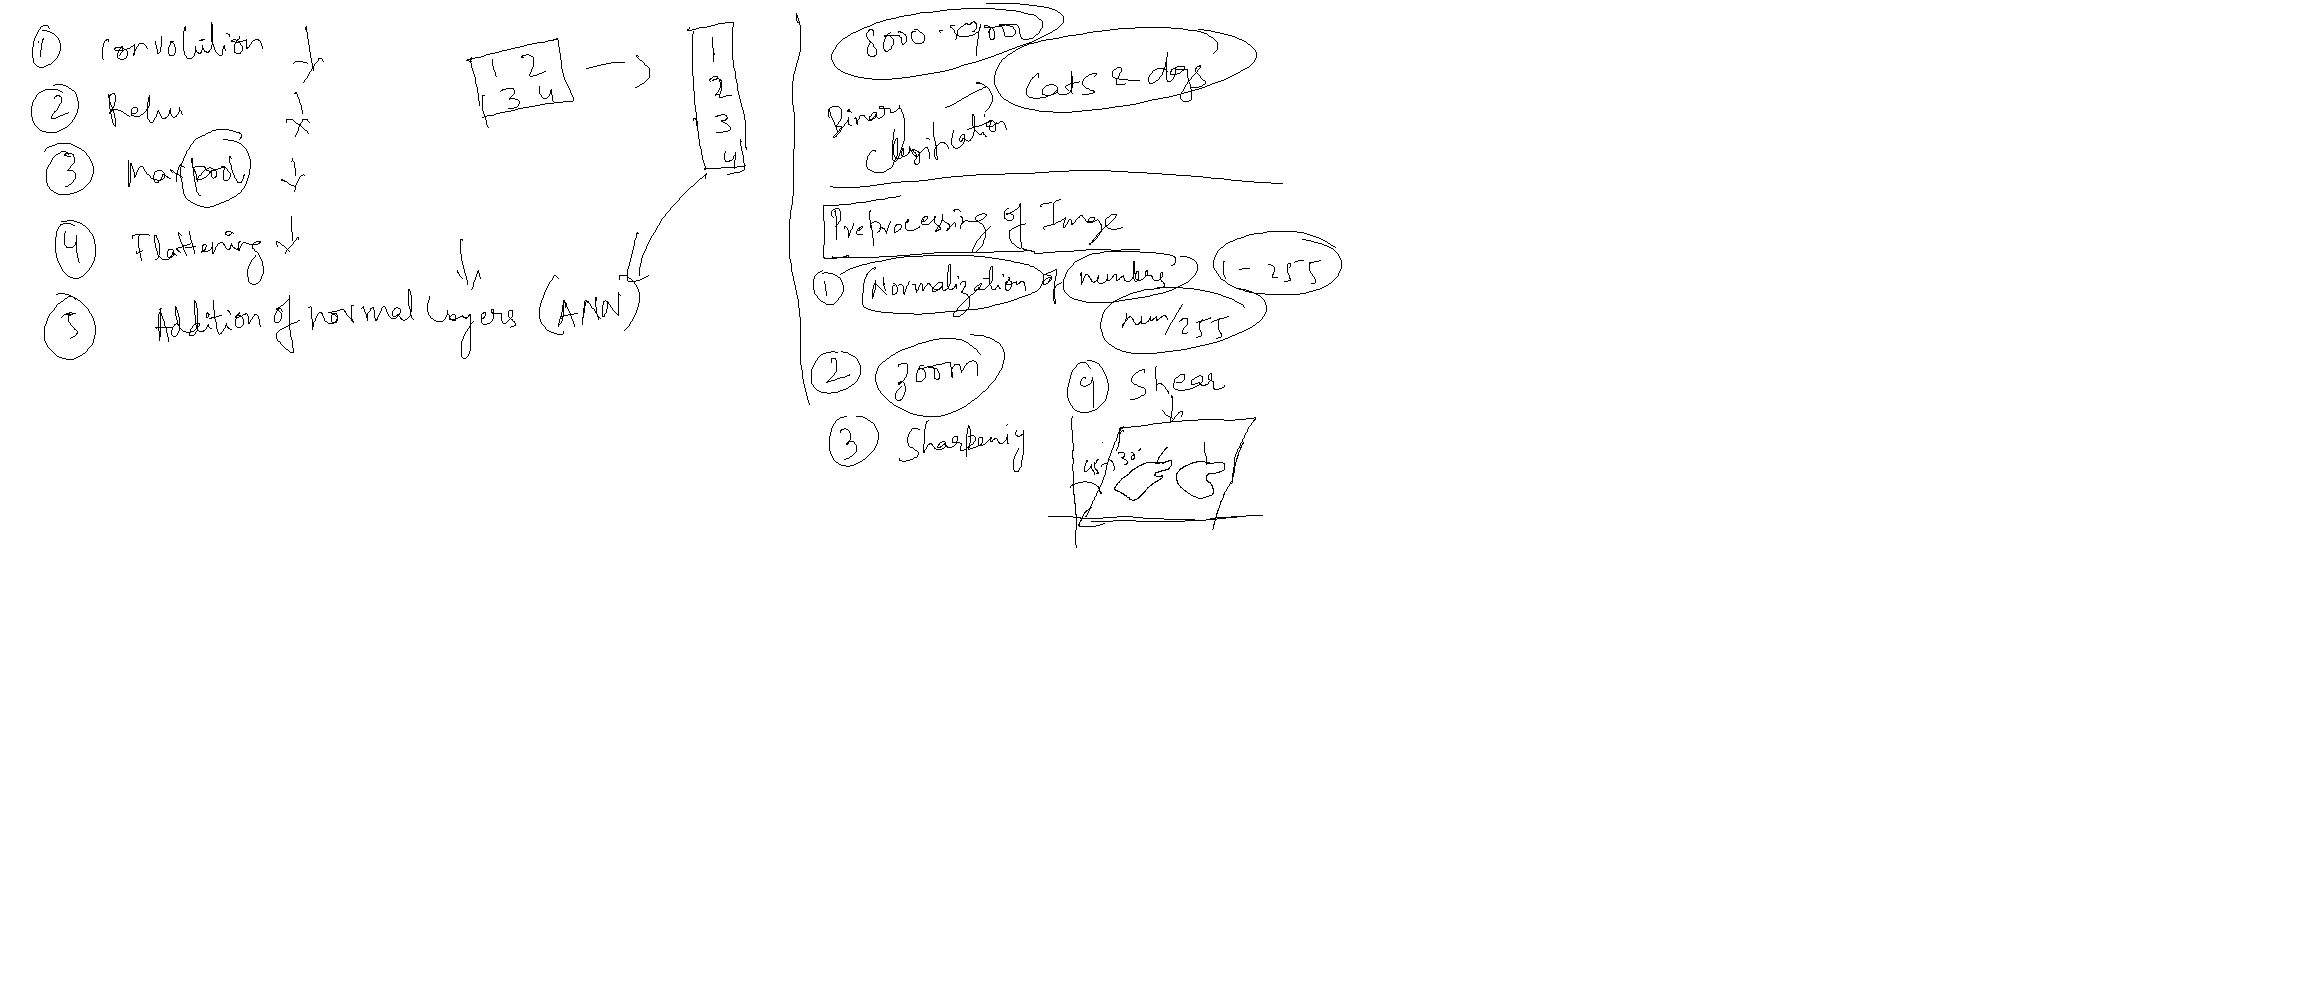 ① Convolution
② Relu
③ Maxpool
④ Flattening
⑤ Addition of normal layers (ANN)
1 2
3 4
1
2
3
4
8000
Cats & dogs
Binary
Classification
Preprocessing of Image
① Normalization of numbers 1 - 255
num/255
② zoom
③ Sharpeniy
④ Shear